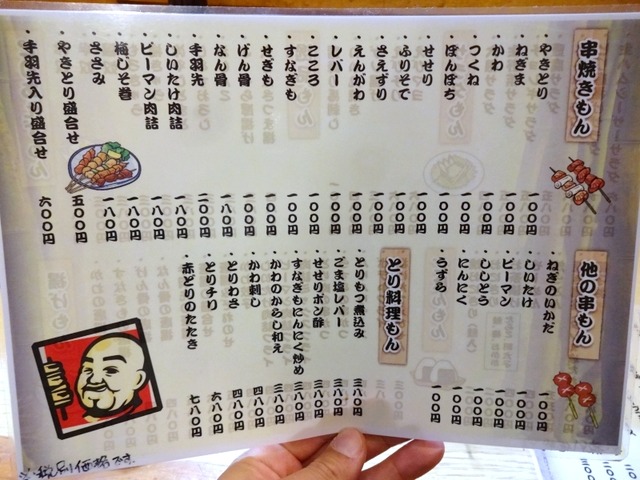 串焼きもん
・やきとり 一〇〇円
・ねぎま 一〇〇円
・かわ 一〇〇円
・つくね 一〇〇円
・ぼんぼち 一〇〇円
・せせり 一〇〇円
・ふりそで 一〇〇円
・さえずり 一〇〇円
・えんがわ 一〇〇円
・レバー 一〇〇円
・こころ 一〇〇円
・すなぎも 一〇〇円
・せぎも 一〇〇円
・げん骨 一〇〇円
・なん骨 一八〇円
・手羽先 二〇〇円
・しいたけ肉詰 一八〇円
・ピーマン肉詰 一八〇円
・梅じそ巻 一八〇円
・ささみ 一八〇円
・やきとり盛合せ 五〇〇円
・手羽先入り盛合せ 六〇〇円
他の串もん
・ねぎのいかだ 一〇〇円
・しいたけ 一〇〇円
・ピーマン 一〇〇円
・ししとう 一〇〇円
・にんにく 一〇〇円
・うずら 一〇〇円
とり料理もん
・とりもつ煮込み 三八〇円
・ごま塩レバー 三八〇円
・せせりポン酢 三八〇円
・すなぎもにんにく炒め 三八〇円
・かわのからし和え 三八〇円
・かわ刺し 四八〇円
・とりわさ 四八〇円
・とりチリ 六八〇円
・赤どりのたたき 七八〇円
※税別価格です。